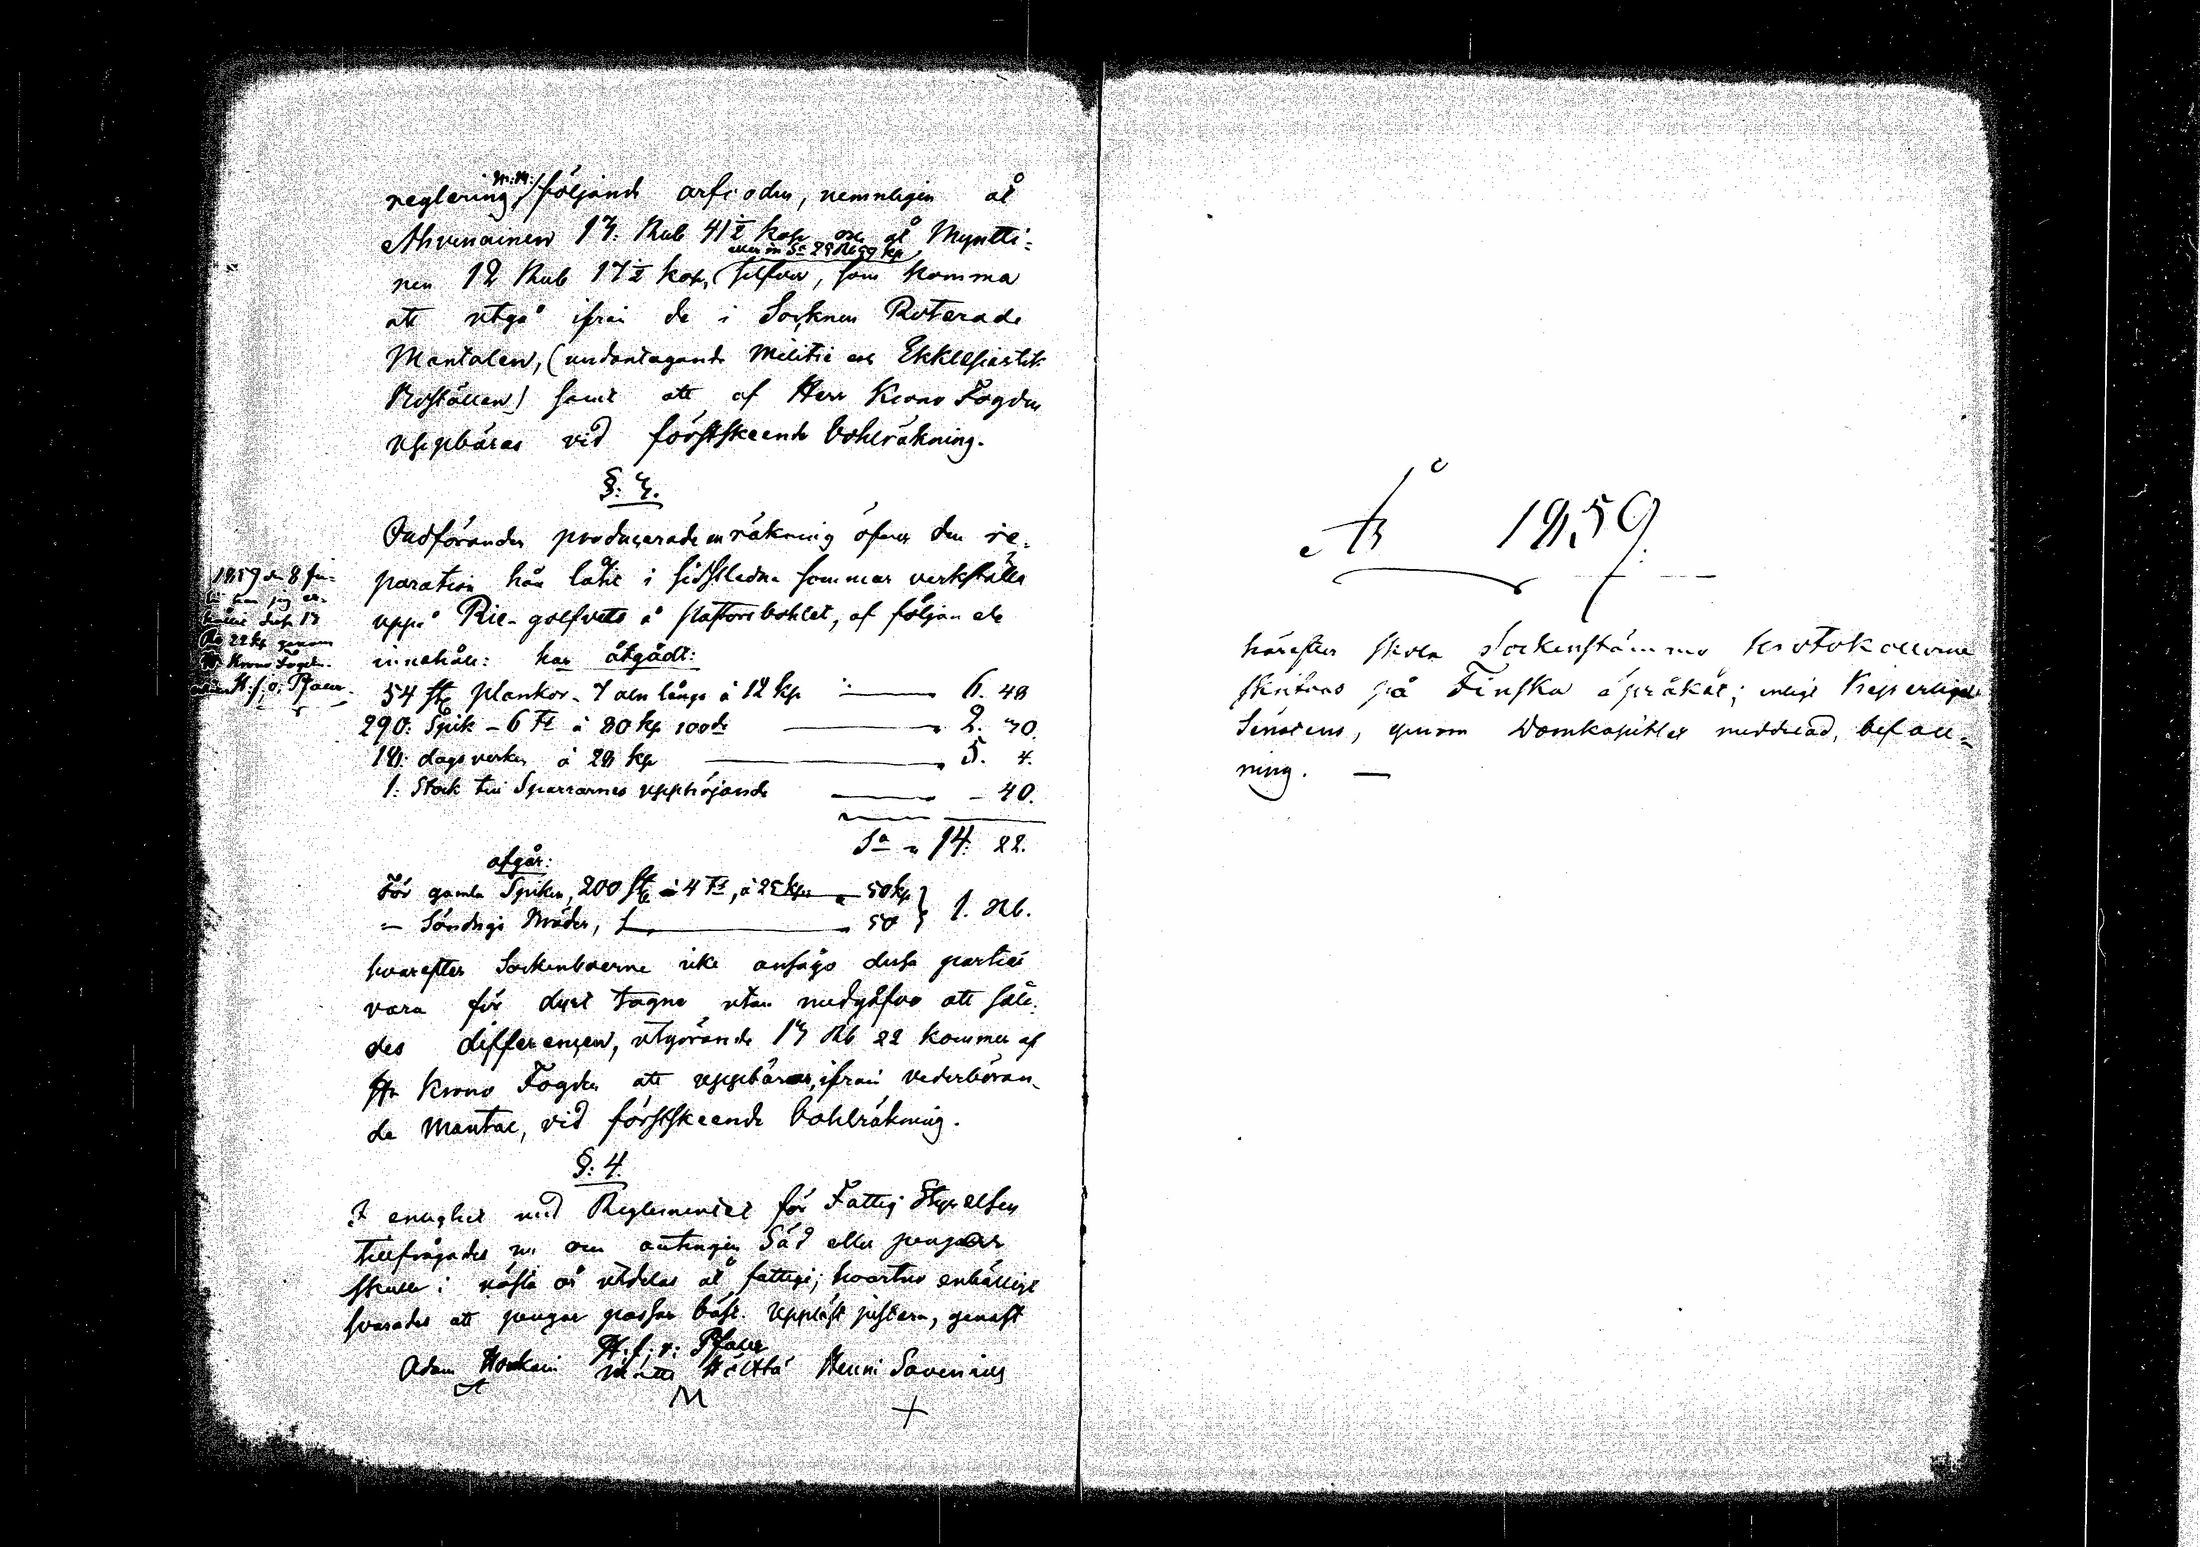 reglering m.m. följande arfvoden, nemnligen åt
Ahvenainen 17. Rub 41½ kop och åt Myntti-
nen 12 Rub 17½ kop, silfver, som komma
att utgå ifrån de i Socknen Roterade
Mantalen, (undantagande Militie och Ekklesiastik
Boställen) samt att af Herr Krono Fogden
uppbäras vid förstskeende bohlräkning.
§: 3.
Ordföranden producerade en räkning öfver den re-
paration han låtit i sidstledne sommar verkställa
uppå Rie-golfvet å pastorsbohlet, af följande
innehåll: har åtgådt:
54 st plankor - 7 aln långa à 12 kp 6. 48
290: Spik - 6 à 80 kp 100de 2. 30.
18: dagsverken à 28 kp 5. 4.
1: Stock till Sparrarnes upphöjande - 40.
Sa 14. 22.
afgår:
För gamla Spikar, 200 st à 4, à 25 kp 50 kp
Söndrige Bräder, 50 } 1. Rb.
hvarefter Sockenboerne icke ansågo dessa partier
vara för dyrt tagne utan medgåfvo att såle-
des differencen, utgörande 13 Rb 22 kommer af
Hr Krono Fogden att uppbäras, ifrån vederböran-
de Mantal, vid förstskeende bohlräkning.
§: 4.
I enlighet med Reglementet för Fattig Styrelsen
tillfrågades nu om antingen Säd eller pengar
skulle i nästa år utdelas åt fattige; hvartill enhälligt
svarades att pengar passar bäst. Uppläst justera, genast
H. f. v: Pfaler
Adam Matts Hälttä Henric Savenius
M +
1859 den 8
22 kp genom
Hr Krono Fogden
H. f. v: Pfaler
År 1859.
härefter skola Sockenstämmo Protokollerne
skrifvas på Finska språket; enligt Kejserliga
Senatens, genom Domkapitlet meddelad, befall-
ning. —